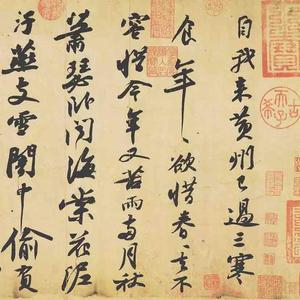 自我來黃州已過三寒
食年〻欲惜春〻去不
容惜今年又苦雨兩月秋
蕭瑟臥聞海棠花泥
汙燕支雪闇中偷負